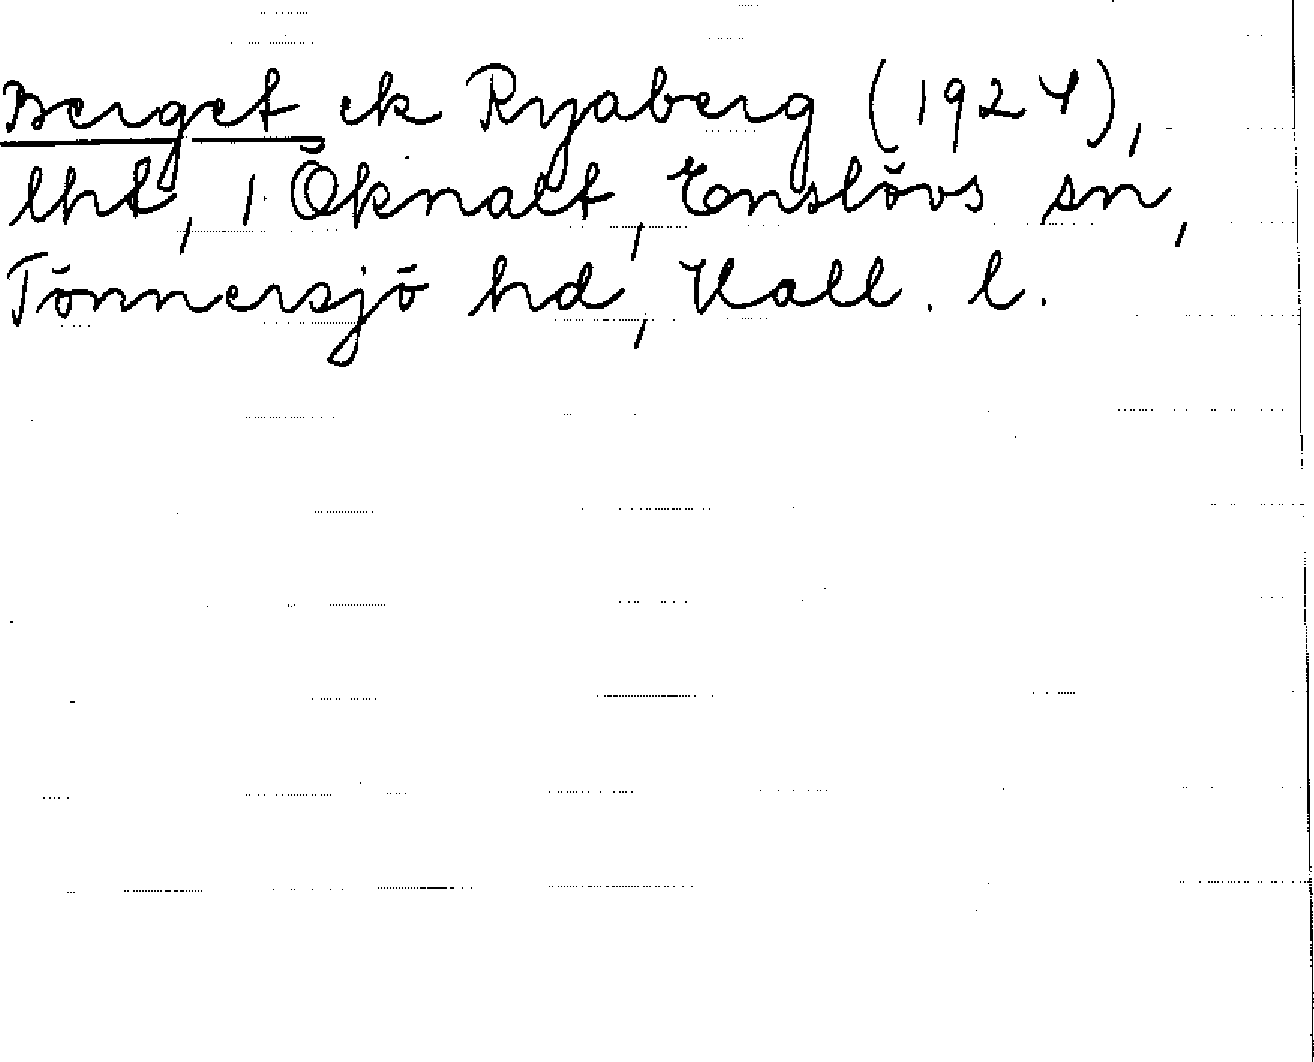 Berget ek Ryaberg (1924),
lht, i Öknalt, Enslövs sn,
Tönnersjö hd, Hall. l.